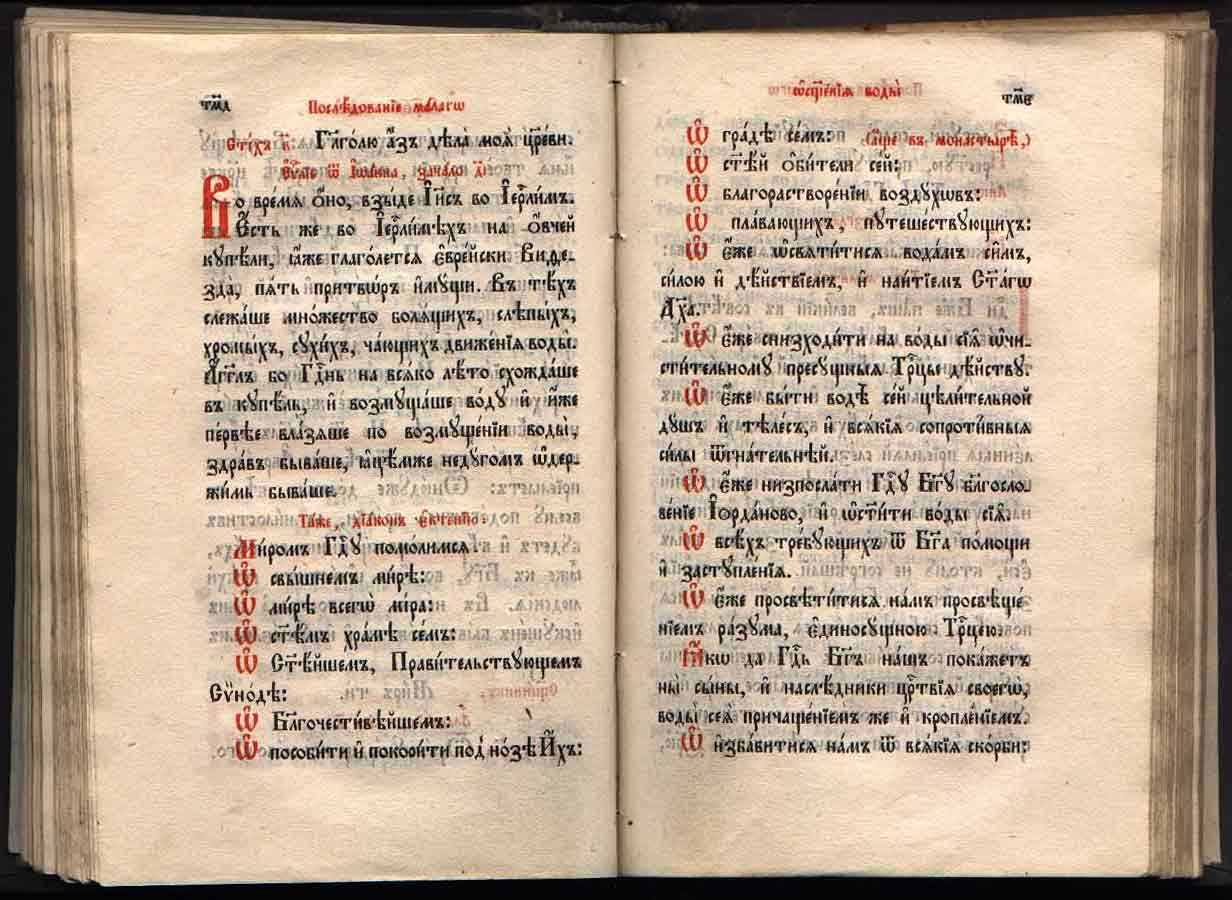 тм҃д
Послѣ́дованїе ма́лагѡ
Сті́хъ в҃: Гл҃го́лю а҆́зъ дѣла̀ моѧ҄ цр҃е́ви.
Єѵⷢ҇лїе ѿ І҆ѡа́нна, зача́ло д҃і
Во вре́мѧ ѻ҆́но, взы́де І҆и҃съ во І҆ерⷭ҇ли́мъ.
Е҆́сть же во І҆ерⷭ҇ли́мѣхъ на ѻ҆́вчей
купѣ́ли, ꙗ҆́же глаго́летсѧ є҆вре́йски Виѳе-
зда̀, пѧ́ть притвѡ́ръ и҆му́щи. Въ тѣ́хъ
слежа́ше мно́жество болѧ́щихъ, слѣпы́хъ,
хромы́хъ, сухи́хъ, ча́ющихъ движе́нїѧ воды̀.
А҆́гг҃лъ бо Гдⷭ҇нь на всѧ́ко лѣ́то схожда́ше
въ купѣ́ль, и҆ возмуща́ше во́ду и҆ и҆́же
пе́рвѣе влазѧ́ше по возмуще́нїи воды̀,
здра́въ быва́ше, ꙗ҆цѣ́мже неду́гомъ ѡ҆дер-
жи́мь быва́ше.
Та́же, дїа́конъ є҆ктенїю̀.
Ми́ромъ Гдⷭ҇у помо́лимсѧ.
Ѽ свы́шнемъ ми́рѣ:
Ѽ ми́рѣ всегѡ̀ мі́ра:
Ѽ ст҃ѣ́мъ хра́мѣ се́мъ:
Ѽ Ст҃ѣ́йшемъ, Прави́тельствующемъ
Сѷно́дѣ:
Ѽ Бл҃гочести́вѣйшемъ:
Ѽ пособи́ти и҆ покори́ти под̾ но́зѣ И҆́хъ:
ѡ҆сщ҃е́нїѧ воды̀
тм҃е
Ѽ гра́дѣ се́мъ: (а҆́ще въ монастырѣ̀,)
Ѽ ст҃ѣ́й ѻ҆би́тели се́й:
Ѽ благорастворе́нїи возду́хѡвъ:
Ѽ пла́вающихъ, путеше́ствующихъ:
Ѽ є҆́же ѡ҆свѧти́тисѧ вода́мъ си̑мъ,
си́лою и҆ дѣ́йствїемъ, и҆ наи́тїемъ Ст҃а́гѡ
Дх҃а.
Ѽ є҆́же снизходи́ти на во́ды сїѧ҄ ѡ҆чи-
сти́тельному пресу́щныѧ Трⷪ҇цы дѣ́йству.
Ѽ є҆́же бы́ти водѣ̀ се́й цѣли́тельной
ду́шъ и҆ тѣле́съ, и҆ всѧ́кїѧ сопроти́вныѧ
си́лы ѿгна́тельнѣй.
Ѽ є҆́же низпосла́ти Гдⷭ҇у Бг҃у бл҃госло-
ве́нїе І҆орда́ново, и҆ ѡ҆ст҃и́ти во́ды сїѧ҄.
Ѽ всѣ́хъ тре́бующихъ ѿ Бг҃а по́мощи
и҆ заступле́нїѧ.
Ѽ є҆́же просвѣти́тисѧ на́мъ просвѣще́-
нїемъ ра́зума, є҆диносу́щною Трⷪ҇цею.
Ꙗ҆́кѡ да Гдⷭ҇ь Бг҃ъ на́шъ пока́жетъ
ны̀ сы́ны, и҆ наслѣ́дники црⷭ҇твїѧ своегѡ̀,
воды̀ сеѧ̀ причаще́нїемъ же и҆ кропле́нїемъ.
Ѽ и҆зба́витисѧ на́мъ ѿ всѧ́кїѧ ско́рби: